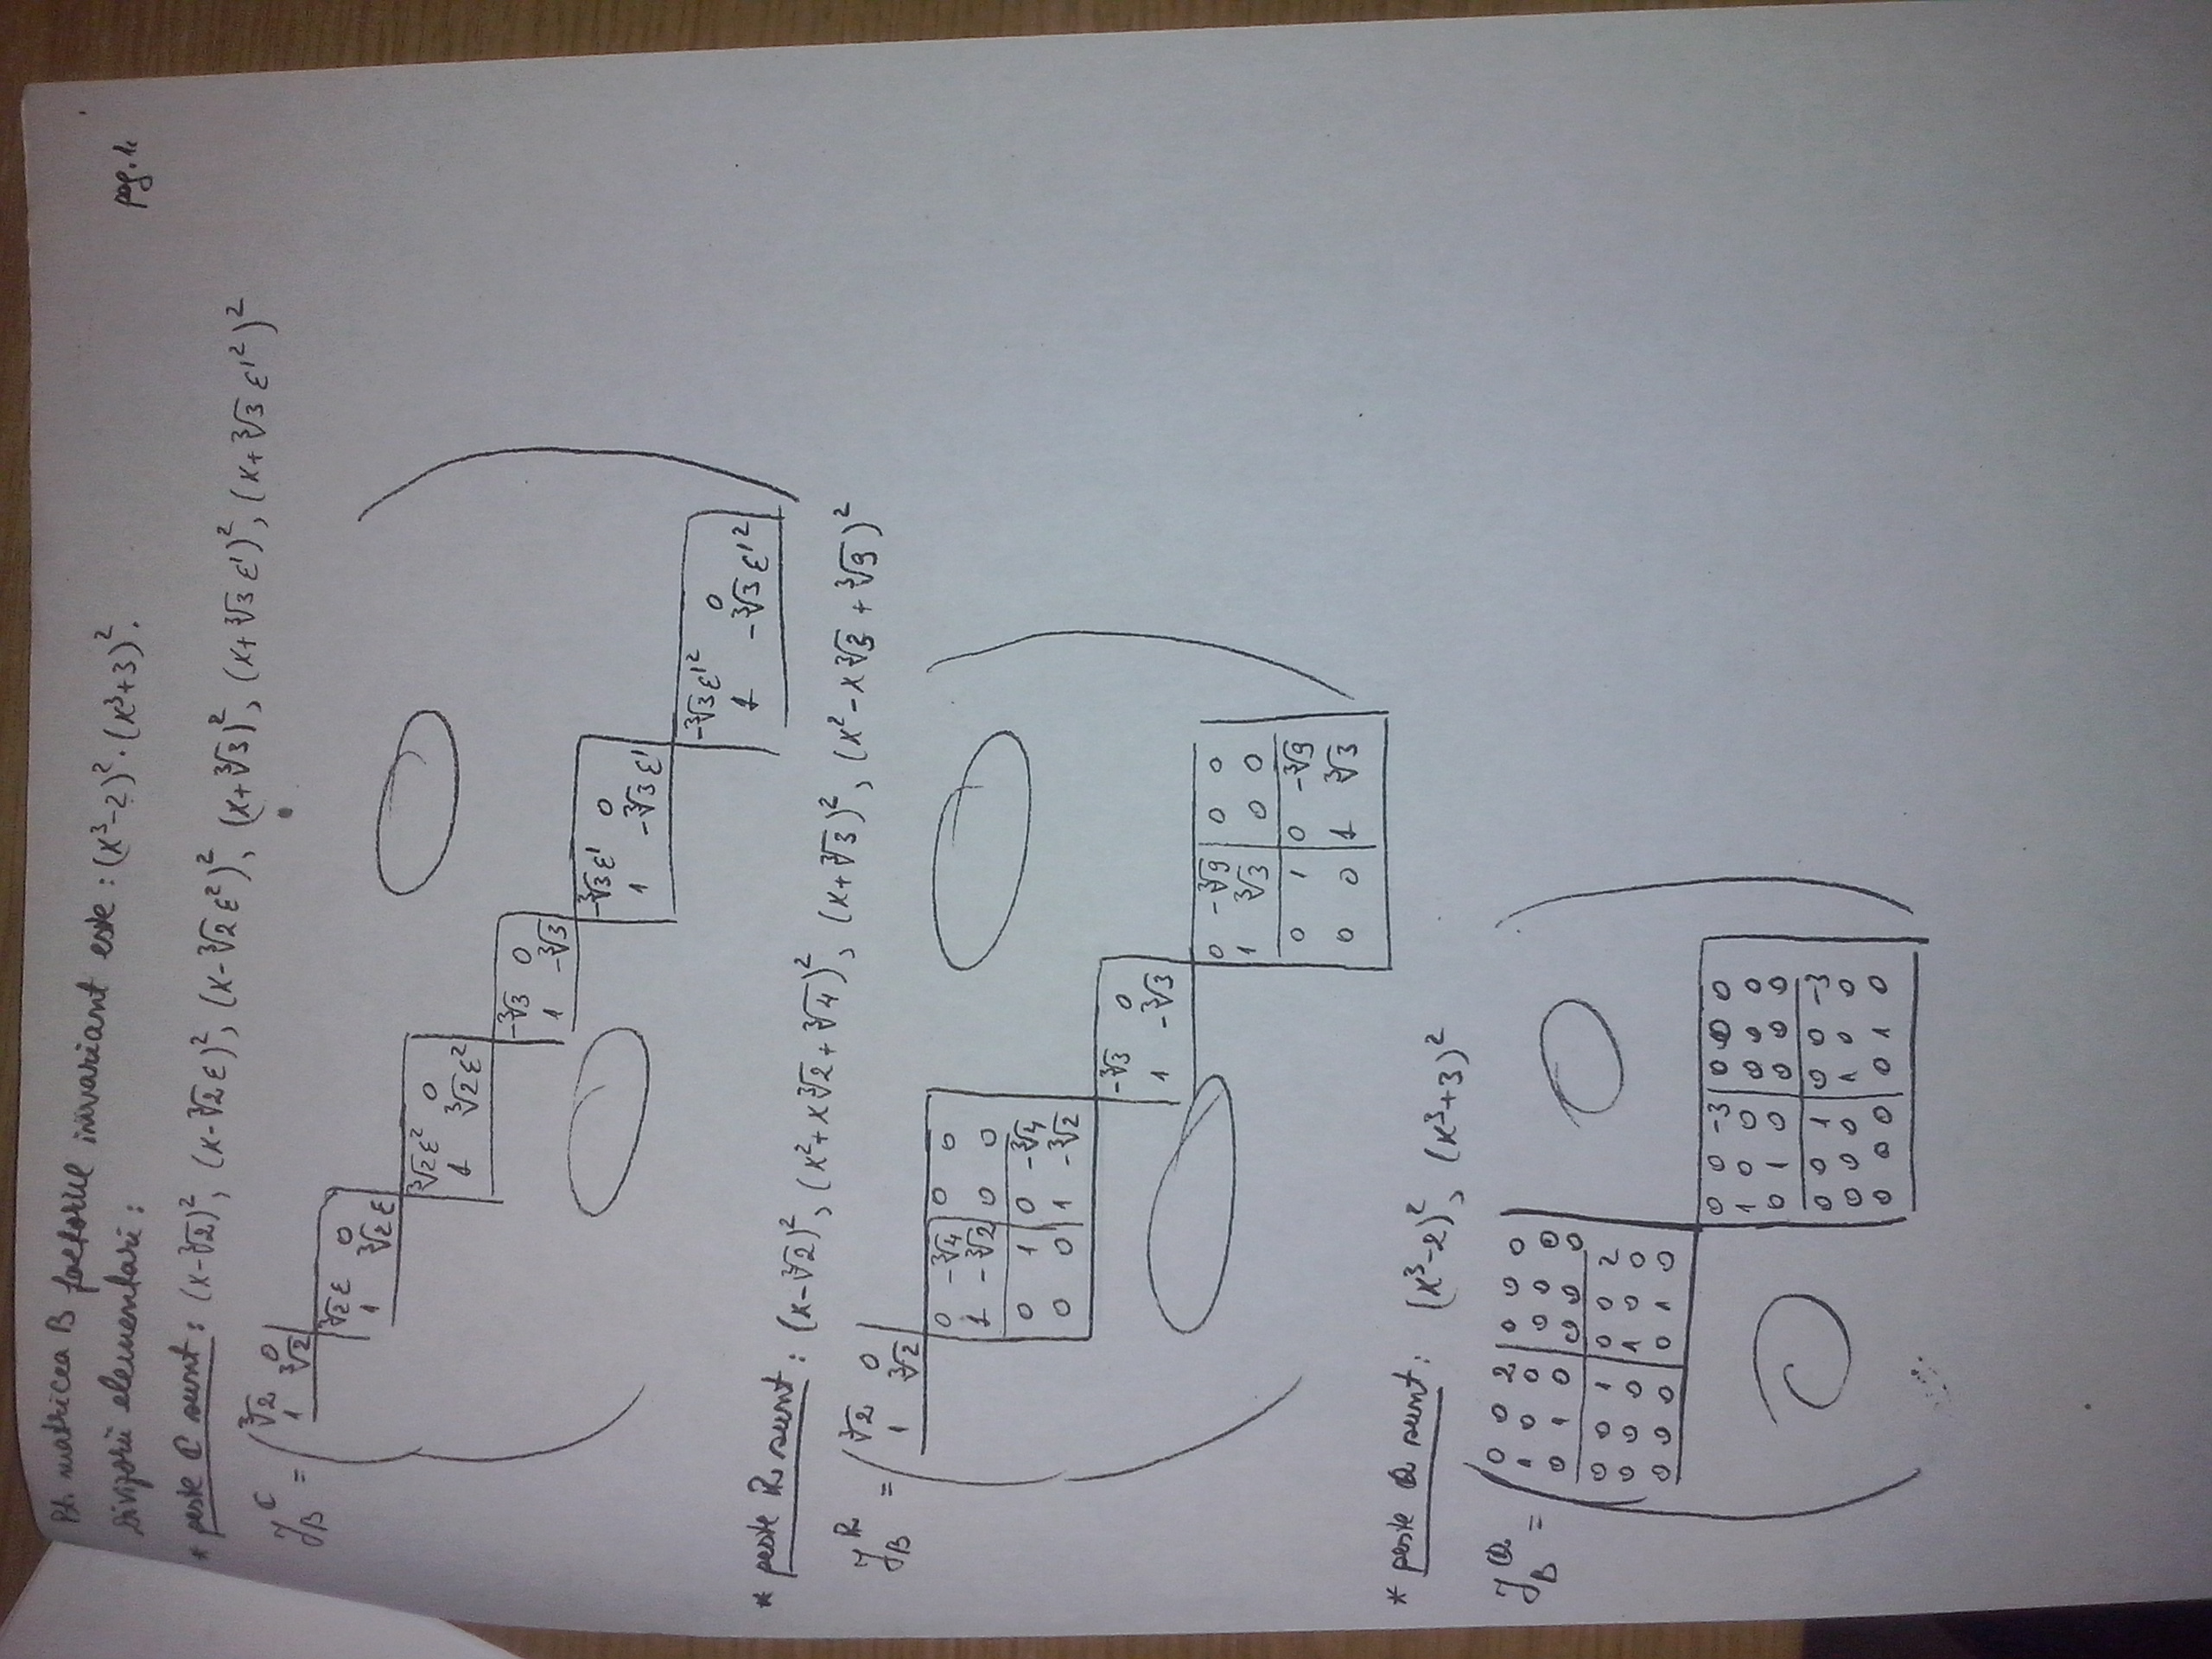 pag. 1.
Pt. matricea B factorul invariant este : (x³-2)² · (x³+3)².
Divizorii elementari :
* peste ℂ sunt : (x-∛2)², (x-∛2 ε)², (x-∛2 ε²)², (x+∛3)², (x+∛3 ε')², (x+∛3 ε'²)²
J_B^ℂ =
∛2 0
1 ∛2
∛2 ε 0
1 ∛2 ε
∛2 ε² 0
1 ∛2 ε²
-∛3 0
1 -∛3
-∛3 ε' 0
1 -∛3 ε'
-∛3 ε'² 0
1 -∛3 ε'²
0
0
* peste ℝ sunt : (x-∛2)², (x²+x∛2+∛4)², (x+∛3)², (x²-x∛3+∛9)²
J_B^ℝ =
∛2 0
1 ∛2
0 -∛4 0 0
1 -∛2 0 0
0 1 0 -∛4
0 0 1 -∛2
-∛3 0
1 -∛3
0 -∛9 0 0
1 ∛3 0 0
0 1 0 -∛9
0 0 1 ∛3
0
0
* peste ℚ sunt : (x³-2)², (x³+3)²
J_B^ℚ =
0 0 2 0 0 0
1 0 0 0 0 0
0 1 0 0 0 0
0 0 1 0 0 2
0 0 0 1 0 0
0 0 0 0 1 0
0 0 -3 0 0 0
1 0 0 0 0 0
0 1 0 0 0 0
0 0 1 0 0 -3
0 0 0 1 0 0
0 0 0 0 1 0
0
0